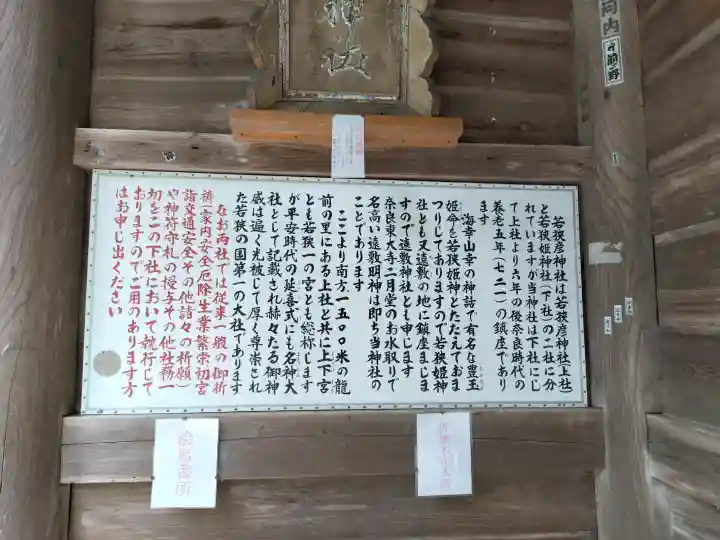 神社
河内
若狭彦神社は若狭彦神社(上社)
と若狭姫神社(下社)の二社に分
れていますが当神社は下社にし
て上社より六年の後奈良時代の
養老五年(七二一)の鎮座であり
ます
海幸山幸の神話で有名な豊玉
姫命を若狭姫神とたたえておま
つりしてありますので若狭姫神
社とも又遠敷の地に鎮座まじま
すので遠敷神社とも申します
奈良東大寺二月堂のお水取りで
名高い遠敷明神は即ち当神社の
ことであります
ここより南方一五〇〇米の龍
前の里にある上社と共に上下宮
とも若狭一の宮とも総称します
が平安時代の延喜式にも名神大
社として記載され赫々たる御神
威は遍く光被して厚く尊崇され
た若狭の国第一の大社であります
なお両社では従来一般の御祈
祷(家内安全厄除生業繁栄初宮
詣交通安全その他諸々の祈願)
や神符守札の授与その他社務一
切をこの下社において執行して
おりますのでご用のあります方
はお申し出ください
絵馬書所